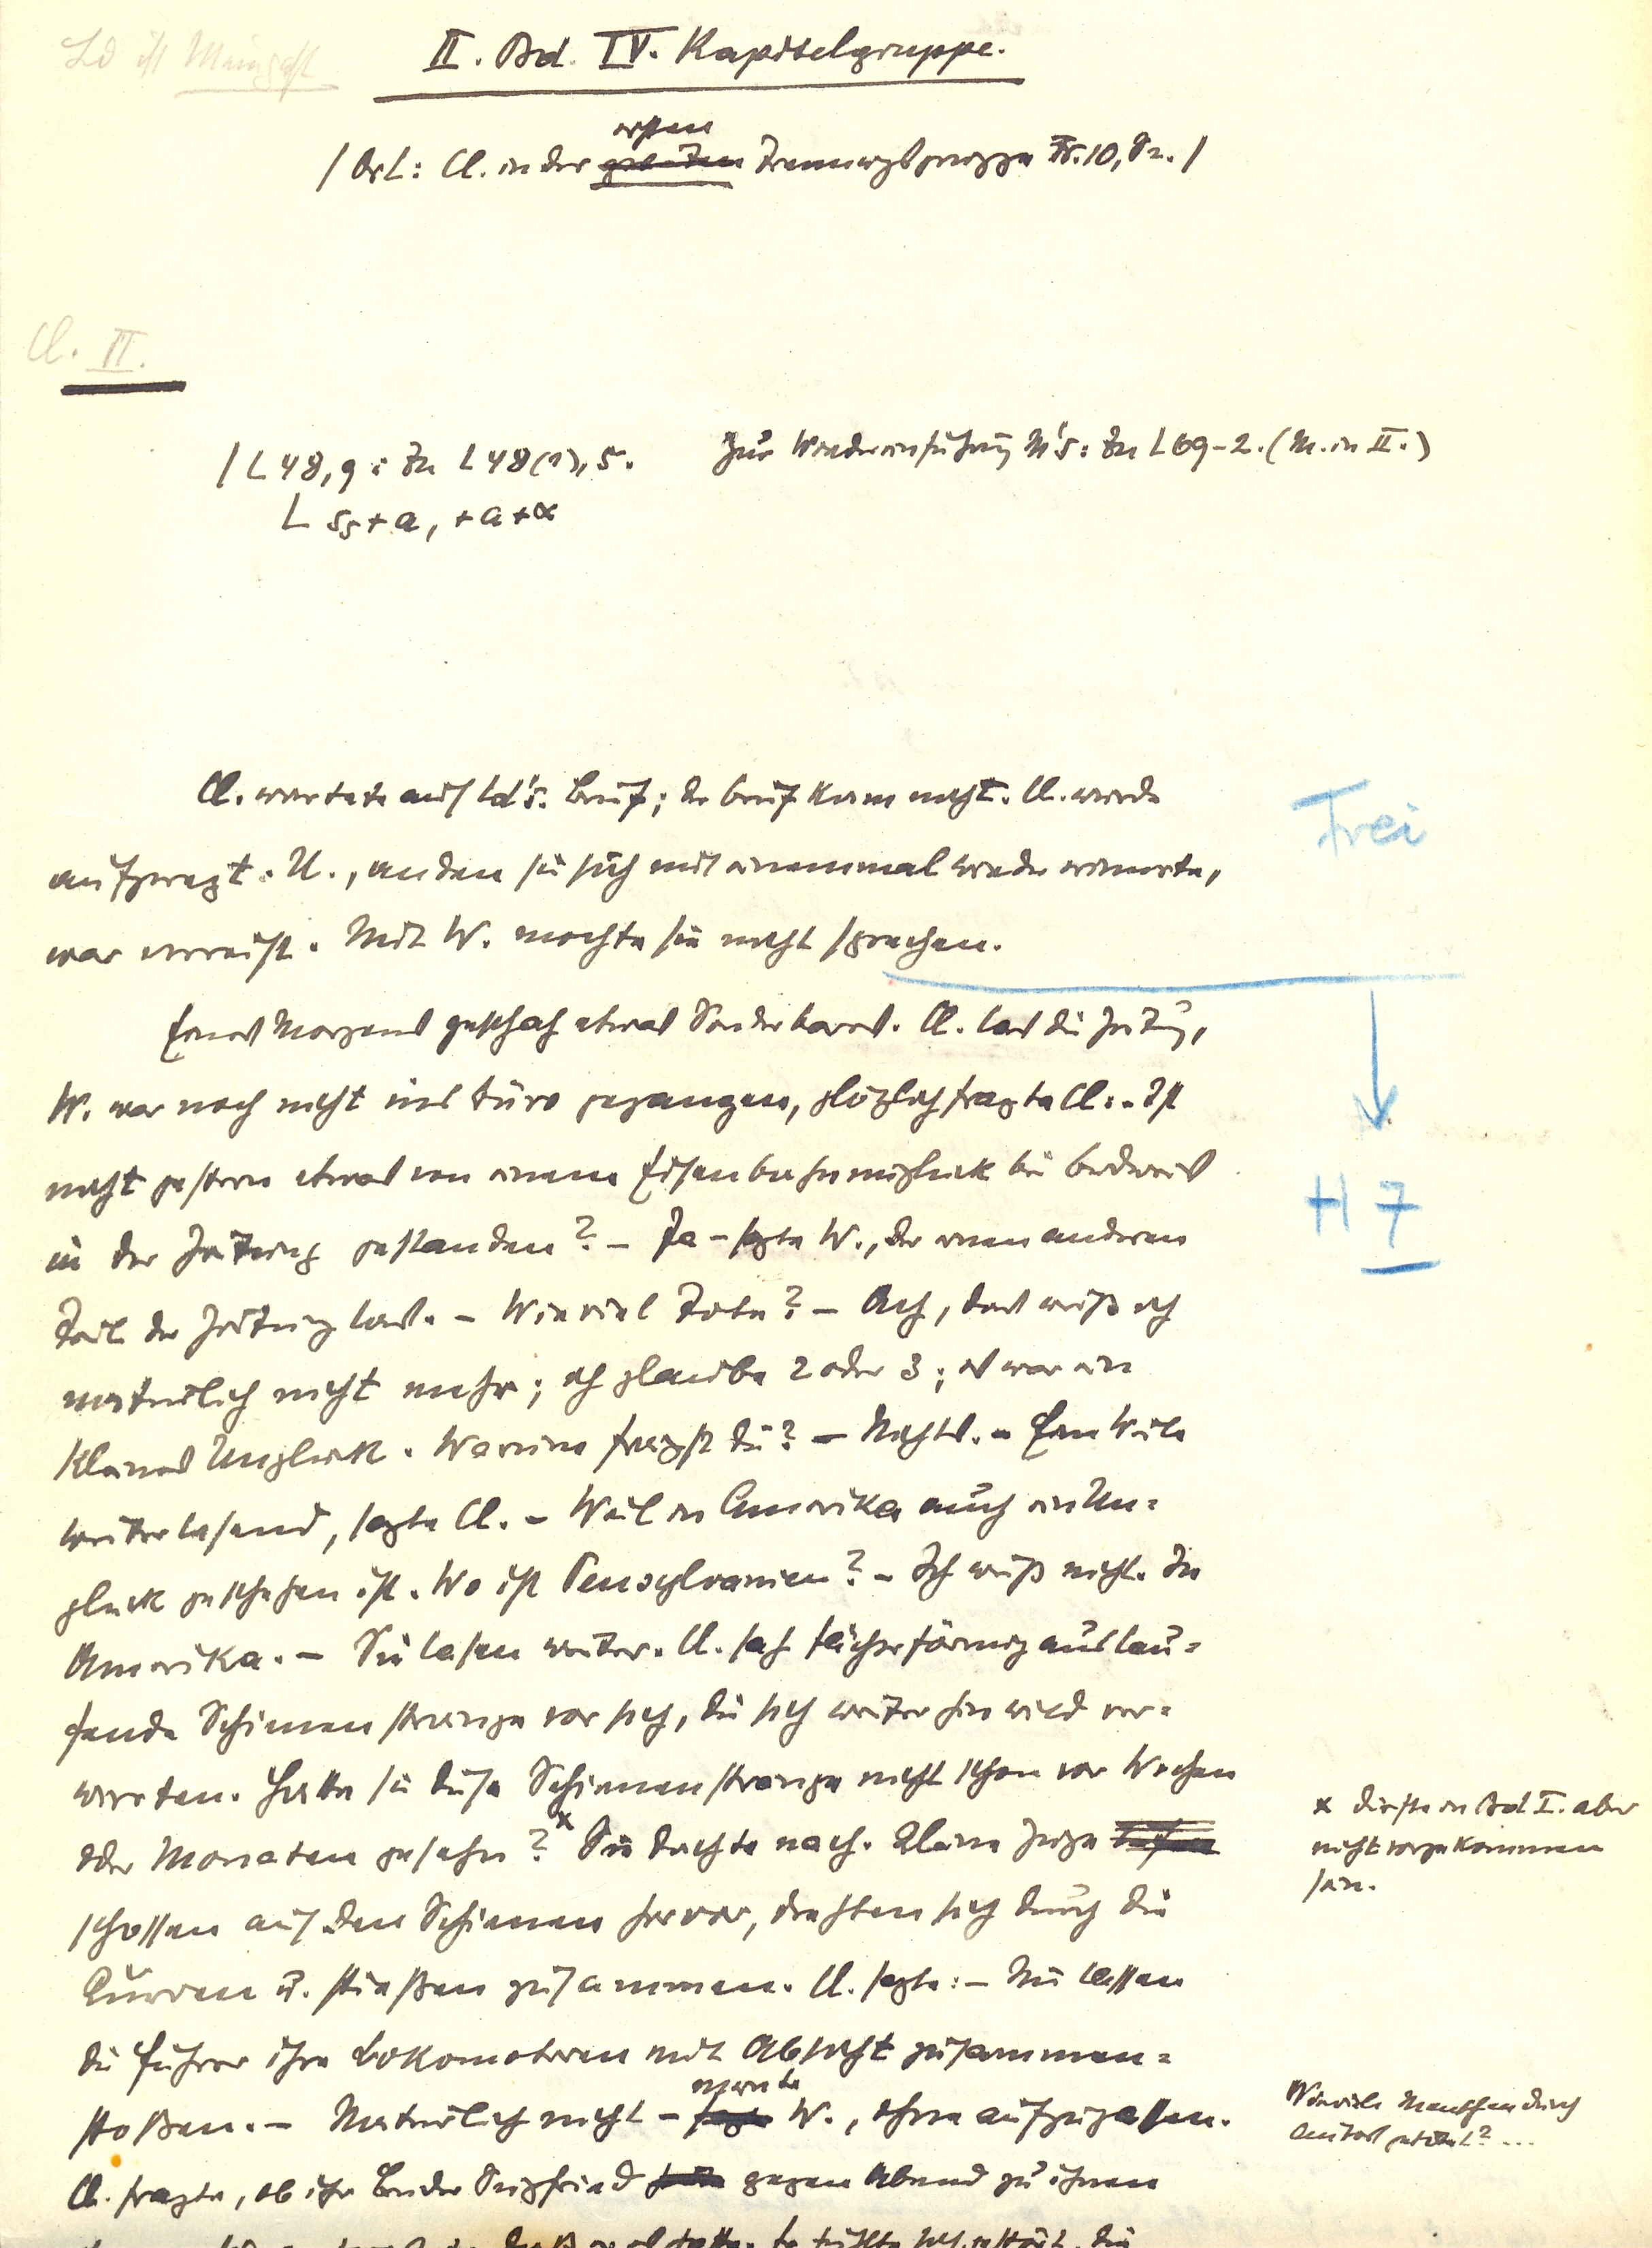 Ld ist Meingast
II. Bd. IV. Kapitelgruppe.
ersten
/ Ort: Cl. in der zweiten Trennungsgruppe Tr. 10, Sn. /
Cl. II.
/ L 48, 9: zu L 48(1), 5.
L 55 + a, + a + α
Zur Wiedereinführung M's: zu L 69-2. (M. in II.)
Cl. wartete auf Ld's. Brief; der Brief kam nicht. Cl. wurde
aufgeregt. U., an den sie sich mit einemmal wieder erinnerte,
war verreist. Mit W. mochte sie nicht sprechen.
Frei
Eines Morgens geschah etwas Sonderbares. Cl. las die Zeitung,
W. war noch nicht ins Büro gegangen, plötzlich fragte Cl.: - Ist
nicht gestern etwas von einem Eisenbahnunglück bei Budweis
in der Zeitung gestanden? – Ja – sagte W., der einen anderen
H 7
Teil der Zeitung las. – Wieviel Tote? – Ach, das weiß ich
natürlich nicht mehr; ich glaube 2 oder 3; es war ein
kleines Unglück. Warum fragst du? – Nichts. – Eine Weile
weiterlesend, sagte Cl. – Weil in Amerika auch ein Un=
glück geschehen ist. Wo ist Pensylvanien? – Ich weiß nicht. In
Amerika. – Sie lasen weiter. Cl. sah fächerförmig auslau=
fende Schienenstränge vor sich, die sich weiterhin wild ver=
wirrten. Hatte sie diese Schienenstränge nicht schon vor Wochen
oder Monaten gesehn?x Sie dachte nach. Kleine Züge
x dürfte in Bd I. aber
nicht vorgekommen
sein.
schossen auf den Schienen hervor, drehten sich durch die
Curven u. stießen zusammen. Cl. sagte: – Nie lassen
die Führer ihre Lokomotiven mit Absicht zusammen=
meinte
stoßen. – Natürlich nicht – sagte W., ohne aufzupassen.
Wieviele Menschen durch
Autos getötet? ...
Cl. fragte, ob ihr Bruder Siegfried gegen Abend zu ihnen